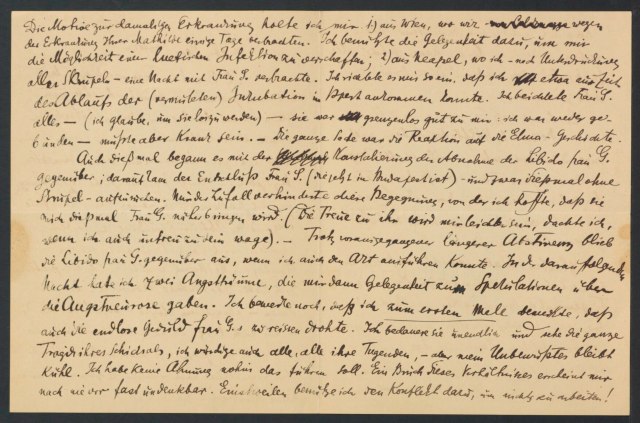 Die Motive zur damaligen Erkrankung holte ich mir 1) aus Wien, wo wir wegen
der Erkrankung Ihrer Mathilde einige Tage verbrachten. Ich benützte die Gelegenheit dazu, um mir
die Möglichkeit einer luetischen Infektion zu verschaffen; 2) aus Neapel, wo ich – nach Unterdrückung
aller Skrupel – eine Nacht mit Frau S. verbrachte. Ich richtete es mir so ein, daß ich etwa zur Zeit
des Ablaufs der (vermuteten) Inkubation in Bpest ankommen konnte. Ich beichtete Frau G.
alles – (ich glaube, um sie loszuwerden) – sie war grenzenlos gut zu mir: ich war weder ge-
bunden – mußte aber krank sein. – Die ganze Sache war die Reaktion auf die Elma-Geschichte.
Auch diesmal begann es mit der Konstatierung der Abnahme der Libido Frau G.
gegenüber; darauf kam der Entschluß Frau S. (die jetzt in Budapest ist) – und zwar diesmal ohne
Skrupel – aufzusuchen. Nur der Zufall verhinderte diese Begegnung, von der ich hoffte, daß sie
mich diesmal Frau G. näher bringen wird. (Die Treue zu ihr wird mir leichter sein, dachte ich,
wenn ich auch untreu zu sein wage). – Trotz vorausgegangener längerer Abstinenz blieb
die Libido Frau G. gegenüber aus, wenn ich auch den Akt ausführen konnte. In der darauf folgenden
Nacht hatte ich zwei Angstträume, die mir dann Gelegenheit zu Spekulationen über
die Angstneurose gaben. Ich bemerke noch, daß ich zum ersten Male bemerkte, daß
auch die endlose Geduld Frau G.s zu reissen drohte. Ich bedauere sie unendlich und sehe die ganze
Tragik ihres Schicksals, ich würdige auch alle, alle ihre Tugenden, – aber mein Unbewußtes bleibt
kühl. Ich habe keine Ahnung wohin das führen soll. Ein Bruch dieses Verhältnisses erscheint mir
nach wie vor fast undenkbar. Einstweilen benütze ich den Konflikt dazu, um nichts zu arbeiten!